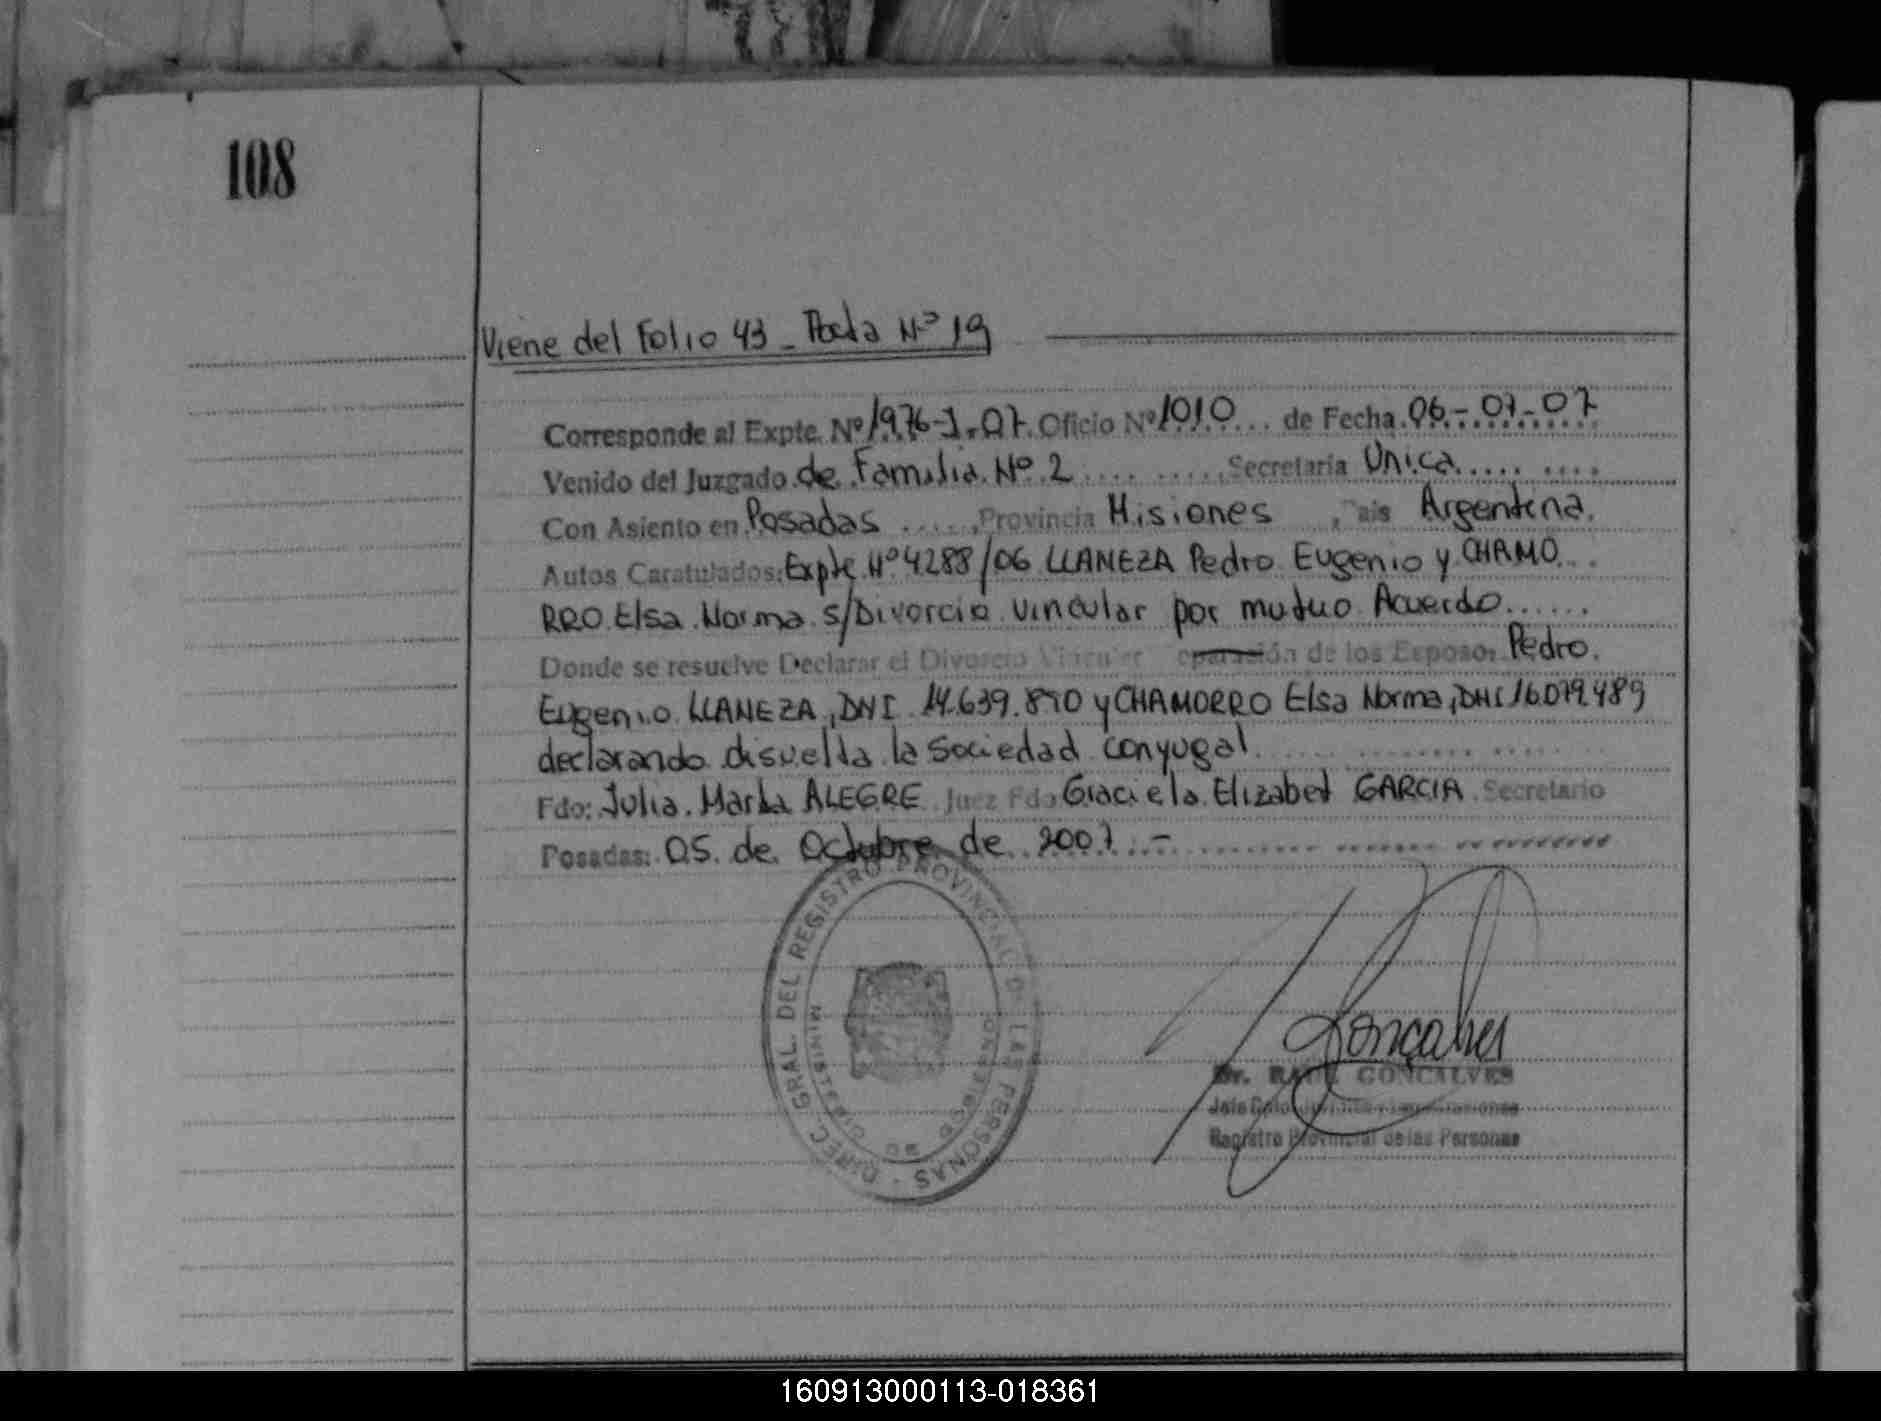 108
Viene del Folio 43 - Acta Nº 19
Corresponde al Expte. Nº 1976-J-07. Oficio Nº 1010 ... de Fecha. 06-07-07
Venido del Juzgado de Familia Nº 2 ........ Secretaría Única ........
Con Asiento en Posadas ....., Provincia Misiones , País Argentina.
Autos Caratulados: Expte Nº 4288/06 LLANEZA Pedro Eugenio y CHAMO
RRO Elsa Norma s/Divorcio vincular por mutuo Acuerdo......
Donde se resuelve Declarar el Divorcio Vincular de los Esposos Pedro
Eugenio LLANEZA, DNI 14.639.870 y CHAMORRO Elsa Norma, DNI 16.079.489
declarando disuelta la Sociedad conyugal.
Fdo: Julia Marta ALEGRE Juez Fdo Graciela Elizabet GARCIA Secretario
Posadas: 05 de Octubre de 2007.-
DIREC. GRAL. DEL REGISTRO PROVINCIAL DE LAS PERSONAS
MINISTERIO DE GOBIERNO
Gonçalves
Dr. RAUL GONCALVES
Registro Provincial de las Personas
160913000113-018361